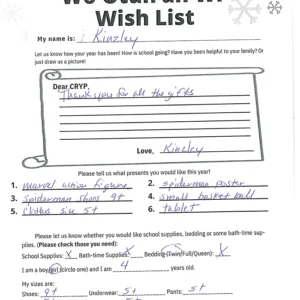 Wish List
My name is: Kinzley
Let us know how your year has been! How is school going? Have you been helpful to your family? Or
just draw us a picture!
Dear CRYP,
Thank you for all the gifts
Love, Kinzley
Please tell us what presents you would like this year!
1. marvel action figure 2. spiderman poster
3. spiderman shoes 9t 4. small basket ball
5. clothes size 5t 6. tablet
Please let us know whether you like school supplies, bedding or some bath-time sup-
plies. (Please check those you need):
School Supplies: X Bath-time Supplies: X Bedding (Twin/Full/Queen): X
I am a boy/girl (circle one) and I am 4 years old.
My sizes are:
Shoes: 9t Underwear: 5t Pants: 5t